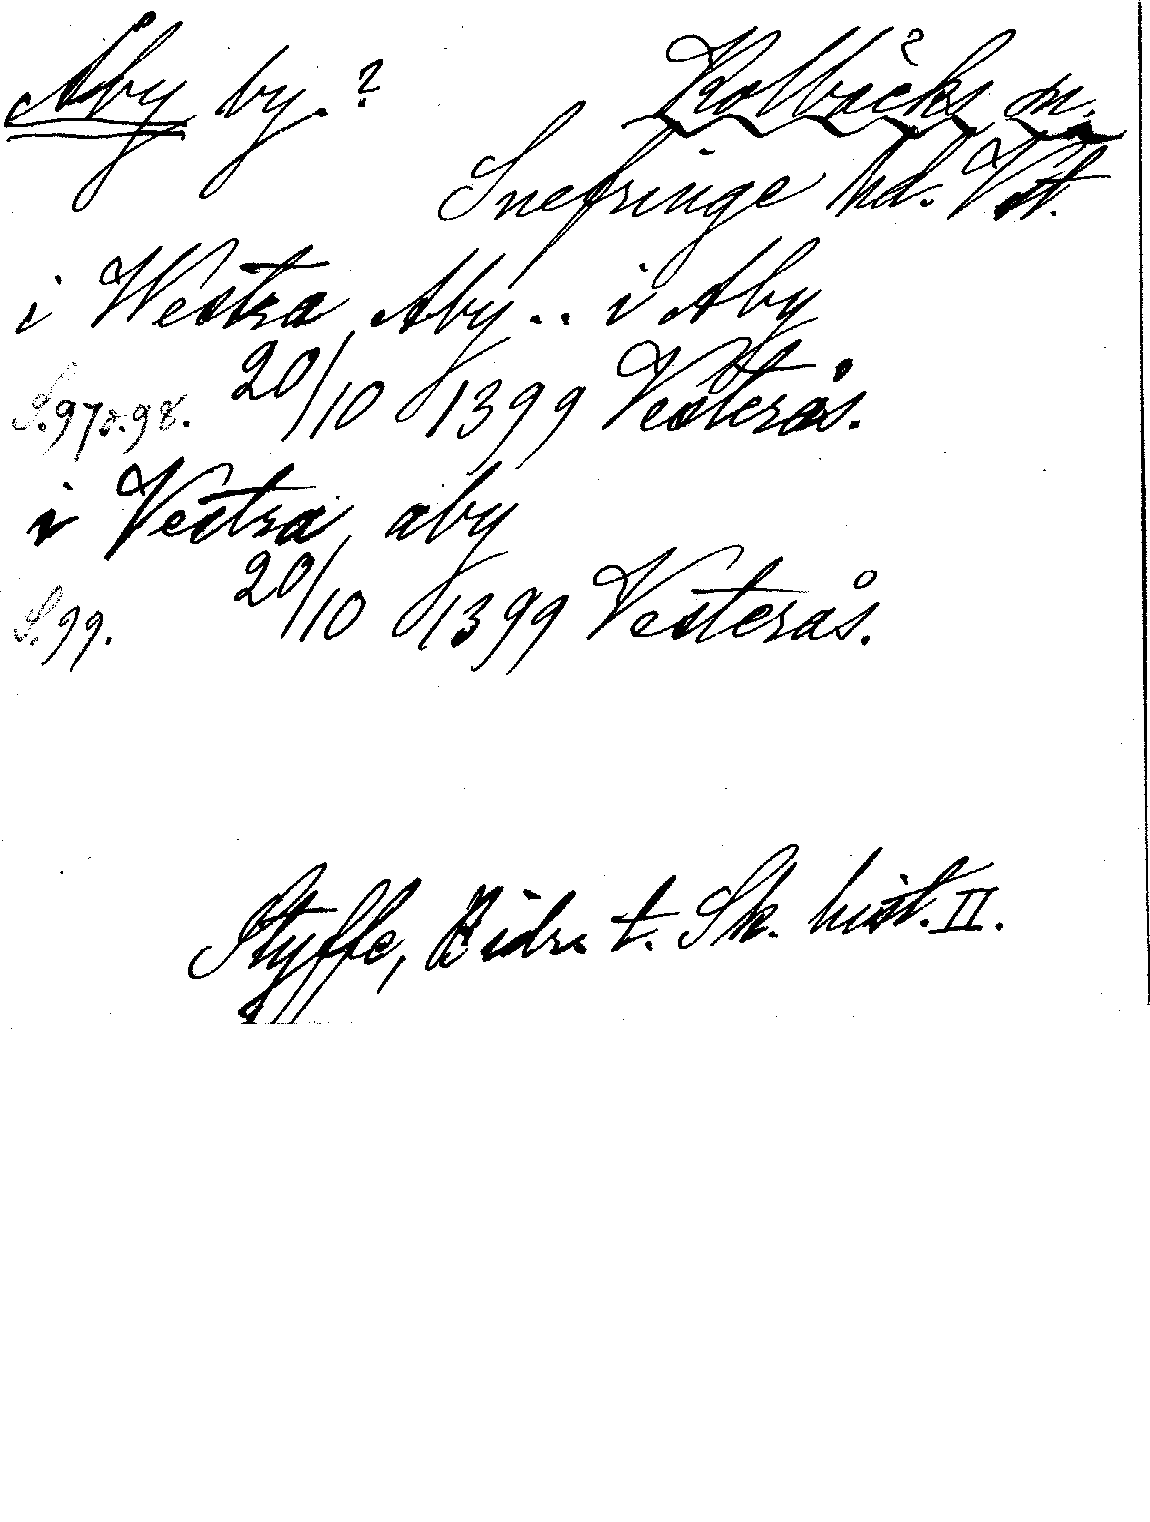 Åby by. ? Kolbäcks sn.
Snefringe hd. Vst.
i Westra Aby .. i Aby
S. 97 o. 98. 20/10 1399 Vesterås.
i Vestra aby
S. 99. 20/10 1399 Vesterås.
Styffe, Bidr. t. Sk. hist. II.